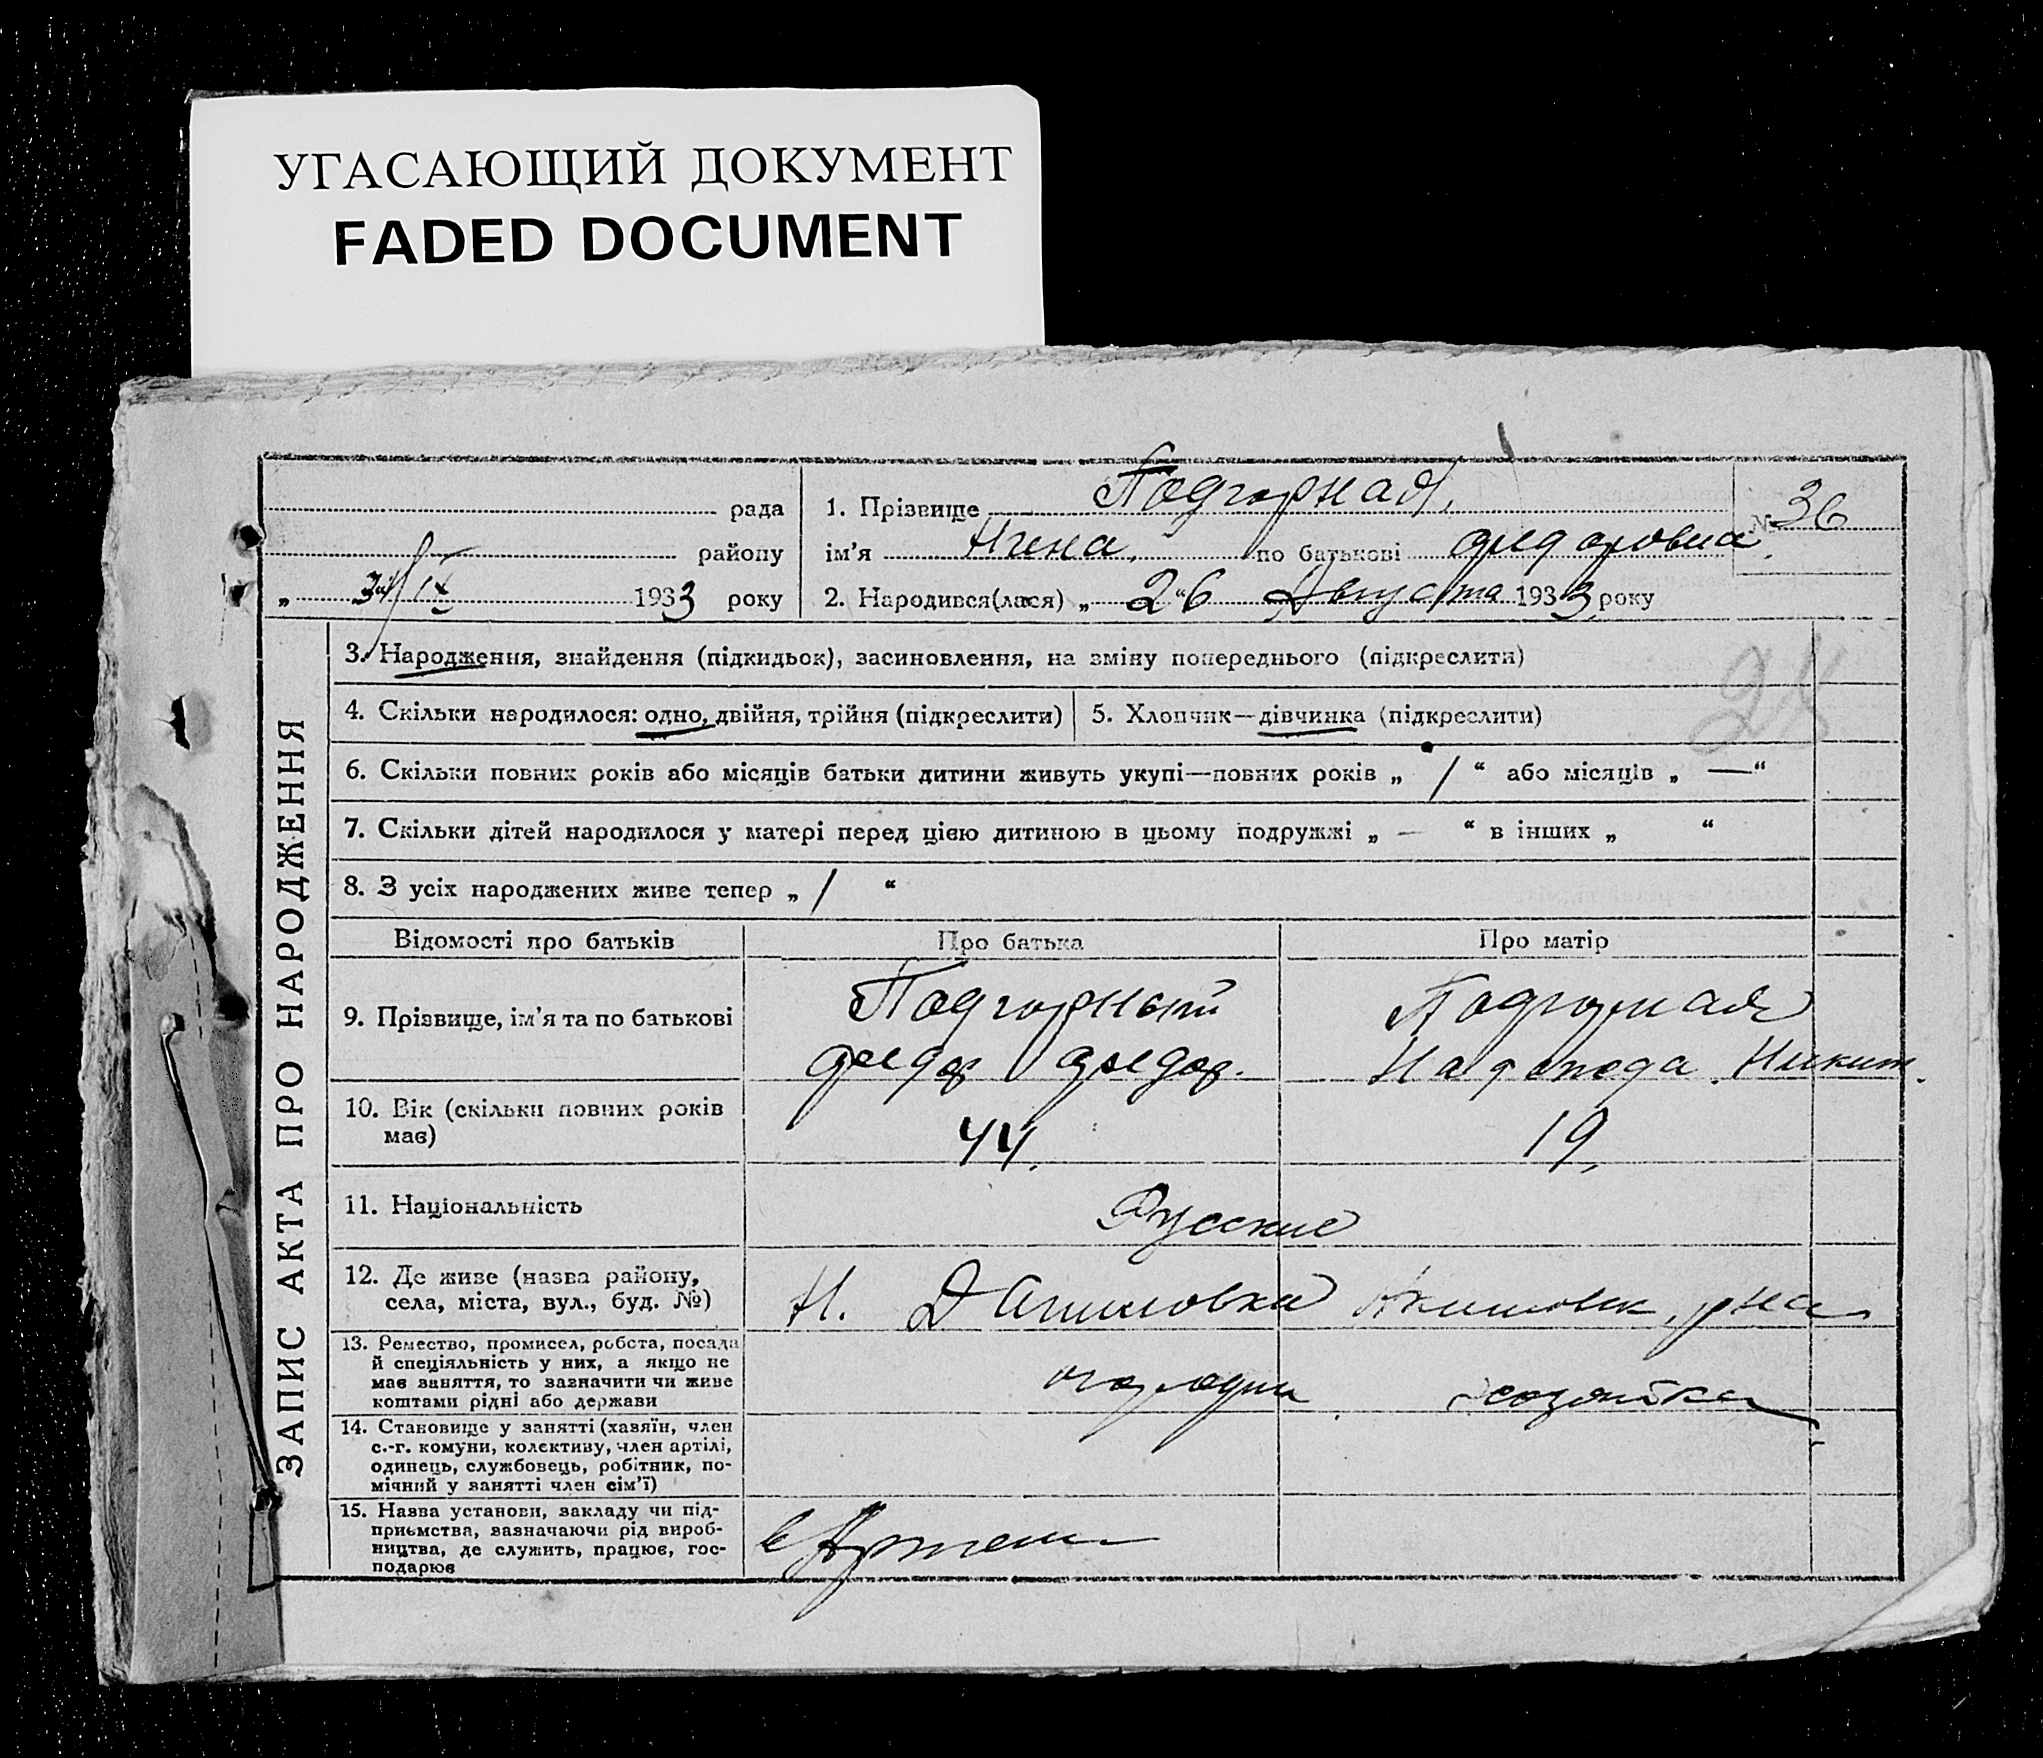 УГАСАЮЩИЙ ДОКУМЕНТ
FADED DOCUMENT
рада
району
„ 3/IX 1933 року
1. Прізвище Подгорная,
№ 36
ім'я Нина, по батькові Федоровна.
2. Народився(лася) „26“ Августа 1933 року
28
ЗАПИС АКТА ПРО НАРОДЖЕННЯ
3. Народження, знайдення (підкидьок), засиновлення, на зміну попереднього (підкреслити)
4. Скільки народилося: одно, двійня, трійня (підкреслити)
5. Хлопчик—дівчинка (підкреслити)
6. Скільки повних років або місяців батьки дитини живуть укупі—повних років „ / “ або місяців „ — “
7. Скільки дітей народилося у матері перед цією дитиною в цьому подружжі „ — “ в інших „ “
8. З усіх народжених живе тепер „ / “
Відомості про батьків
Про батька
Про матір
9. Прізвище, ім'я та по батькові
Подгорный
Федор Федор.
Подгорная
Никит.
10. Вік (скільки повних років
має)
44.
19.
11. Національність
Русские
12. Де живе (назва району,
села, міста, вул., буд. №)
Н. Даниловка Акимовск. р-на
13. Ремество, промисел, робота, посада
й спеціяльність у них, а якщо не
має заняття, то зазначити чи живе
коштами рідні або держави
хозяйка
14. Становище у занятті (хазяїн, член
с.-г. комуни, колективу, член артілі,
одинець, службовець, робітник, по-
мічний у занятті член сім'ї)
15. Назва установи, закладу чи під-
приємства, зазначаючи рід вироб-
ництва, де служить, працює, гос-
подарює
в Артели